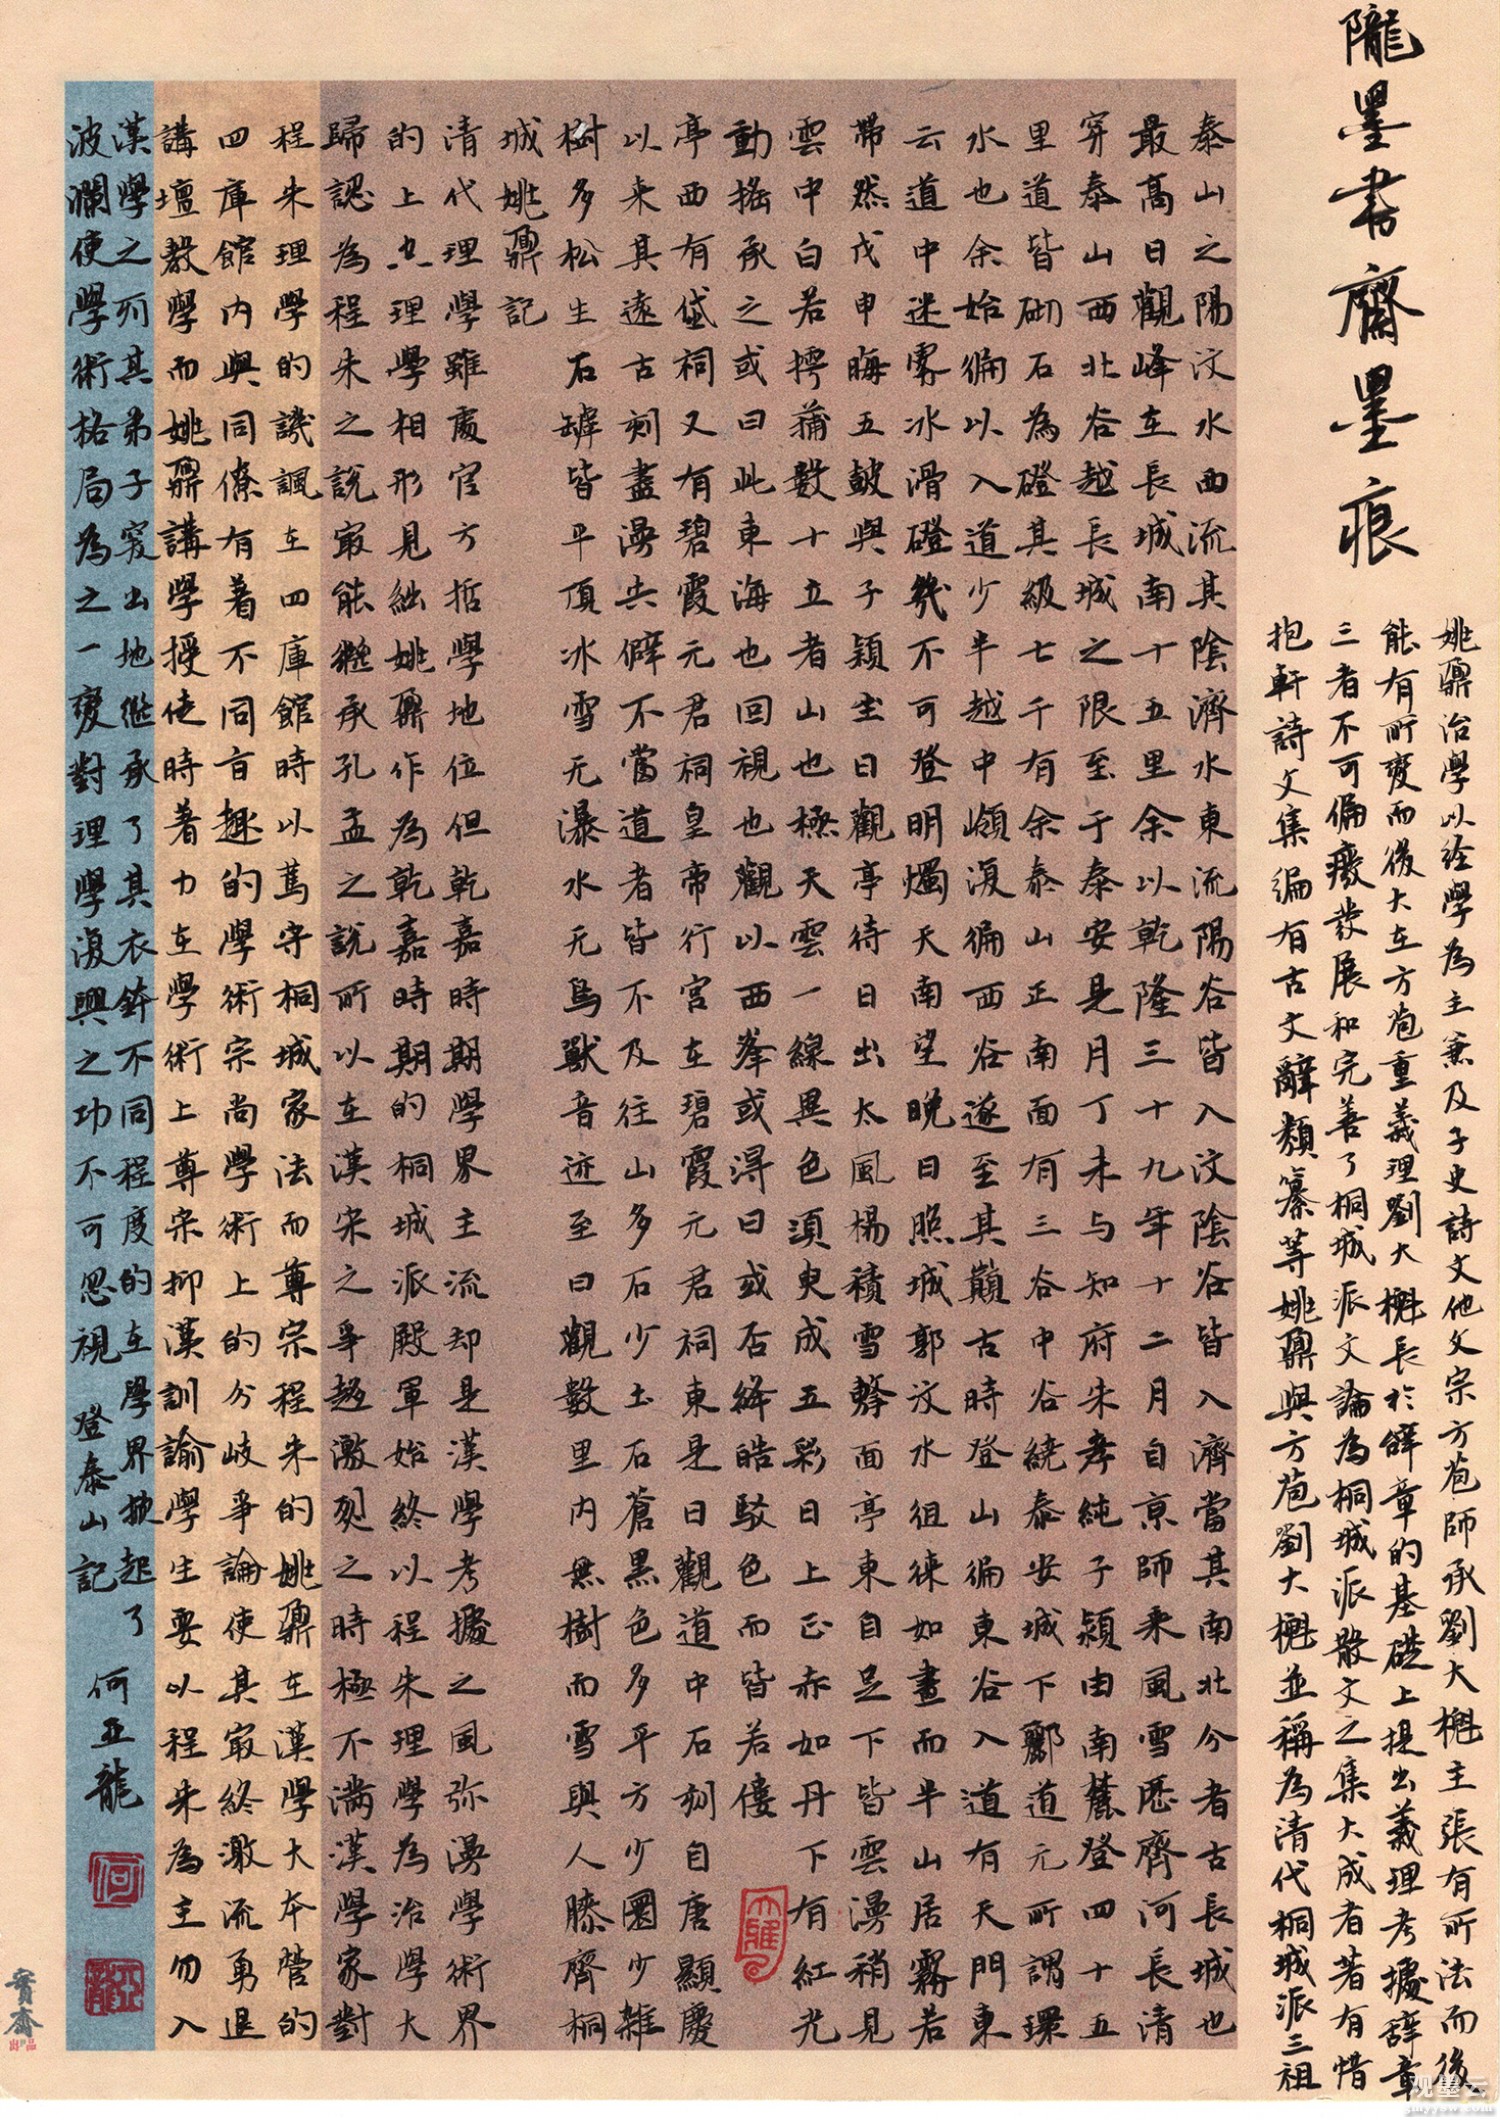 隴墨書齋墨痕
姚鼐治學以經學為主兼及子史詩文他文宗方苞師承劉大櫆主張有所法而後
能有所變而後大在方苞重義理劉大櫆長於辭章的基礎上提出義理考據辭章
三者不可偏廢發展和完善了桐城派文論為桐城派散文之集大成者著有惜
抱軒詩文集編有古文辭類纂等姚鼐與方苞劉大櫆並稱為清代桐城派三祖
泰山之陽汶水西流其陰濟水東流陽谷皆入汶陰谷皆入濟當其南北分者古長城也
最高日觀峰在長城南十五里余以乾隆三十九年十二月自京師乘風雪歷齊河長清
穿泰山西北谷越長城之限至于泰安是月丁未与知府朱孝純子潁由南麓登四十五
里道皆砌石為磴其級七千有余泰山正南面有三谷中谷繞泰安城下酈道元所謂環
水也余始循以入道少半越中嶺復循西谷遂至其巔古時登山循東谷入道有天門東
云道中迷霧冰滑磴幾不可登明燭天南望晚日照城郭汶水徂徠如畫而半山居霧若
帶然戊申晦五鼓與子潁坐日觀亭待日出太風揚積雪擊面亭東自足下皆雲漫稍見
雲中白若摴蒱數十立者山也極天雲一線異色須臾成五彩日上正赤如丹下有紅光
動搖承之或曰此東海也回視也觀以西峯或得日或否絳皓駁色而皆若僂
亭西有岱祠又有碧霞元君祠皇帝行宮在碧霞元君祠東是日觀道中石刻自唐顯慶
以來其遠古刻盡漫失僻不當道者皆不及往山多石少土石蒼黑色多平方少圜少雜
樹多松生石罅皆平頂冰雪无瀑水无鳥獸音迹至日觀數里內無樹而雪與人膝齊桐
城姚鼐記
清代理學雖處官方哲學地位但乾嘉時期學界主流却是漢學考據之風弥漫學術界
的上空理學相形見絀姚鼐作為乾嘉時期的桐城派殿軍始終以程朱理學為治學大
歸認為程朱之說最能繼承孔孟之說所以在漢宋之爭趨激烈之時極不滿漢學家對
程朱理學的譏諷在四庫館時以篤守桐城家法而尊宗程朱的姚鼐在漢學大本營的
四庫館內與同僚有著不同旨趣的學術宗尚學術上的分岐爭論使其最終激流勇退
講壇教學而姚鼐講學授徒時著力在學術上尊宋抑漢訓諭學生要以程朱為主勿入
漢學之列其弟子突出地继承了其衣鉢不同程度的在學界掀起了
波瀾使學術格局為之一變對理學復興之功不可忽視 登泰山記
何亚龍
何
亞龍
大雅
寶齋
出品
观墨云
gmyysw.com